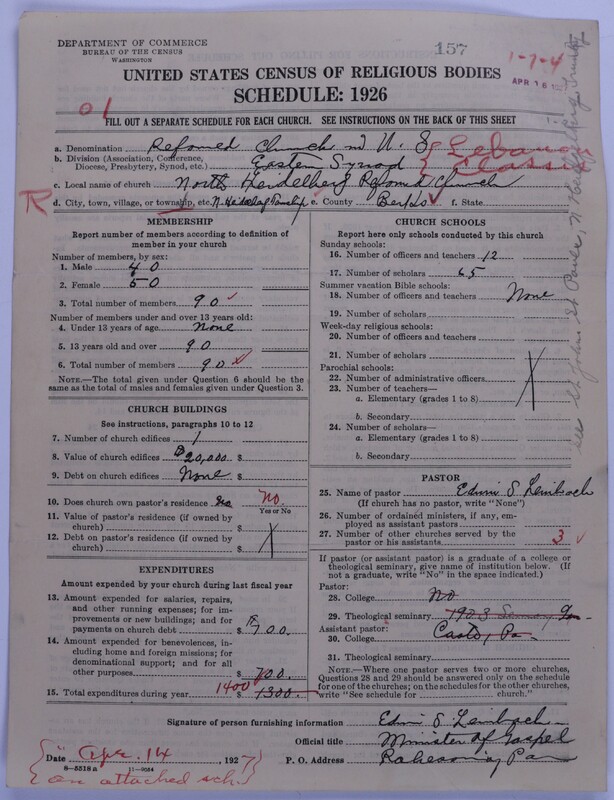 DEPARTMENT OF COMMERCE
BUREAU OF THE CENSUS
WASHINGTON
157
1-7-4
APR 16
UNITED STATES CENSUS OF RELIGIOUS BODIES
SCHEDULE: 1926
01
FILL OUT A SEPARATE SCHEDULE FOR EACH CHURCH. SEE INSTRUCTIONS ON THE BACK OF THIS SHEET
a. Denomination Reformed Church in U. S. Lebanon
b. Division (Association, Conference, Diocese, Presbytery, Synod, etc.) Eastern Synod Classis
c. Local name of church North Heidelberg Reformed Church
R
d. City, town, village, or township, etc. N. Heidelberg Township e. County Berks f. State
MEMBERSHIP
Report number of members according to definition of
member in your church
Number of members, by sex:
1. Male 40
2. Female 50
3. Total number of members 90
Number of members under and over 13 years old:
4. Under 13 years of age None
5. 13 years old and over 90
6. Total number of members 90
NOTE.—The total given under Question 6 should be the
same as the total of males and females given under Question 3.
CHURCH BUILDINGS
See instructions, paragraphs 10 to 12
7. Number of church edifices 1
8. Value of church edifices $20,000. $
9. Debt on church edifices None $
10. Does church own pastor's residence No No.
Yes or No
11. Value of pastor's residence (if owned by
church) $
12. Debt on pastor's residence (if owned by
church) $
EXPENDITURES
Amount expended by your church during last fiscal year
13. Amount expended for salaries, repairs,
and other running expenses; for im-
provements or new buildings; and for
payments on church debt $ 700.
14. Amount expended for benevolences, in-
cluding home and foreign missions; for
denominational support; and for all
other purposes $ 700.
15. Total expenditures during year 1400 $ 1300.
CHURCH SCHOOLS
Report here only schools conducted by this church
Sunday schools:
16. Number of officers and teachers 12
17. Number of scholars 65
Summer vacation Bible schools:
18. Number of officers and teachers None
19. Number of scholars
Week-day religious schools:
20. Number of officers and teachers
21. Number of scholars
Parochial schools:
22. Number of administrative officers
23. Number of teachers—
a. Elementary (grades 1 to 8)
b. Secondary
24. Number of scholars—
a. Elementary (grades 1 to 8)
b. Secondary
PASTOR
25. Name of pastor Edwin S. Leinbach
(If church has no pastor, write "None")
26. Number of ordained ministers, if any, em-
ployed as assistant pastors
27. Number of other churches served by the
pastor or his assistants 3
If pastor (or assistant pastor) is a graduate of a college or
theological seminary, give name of institution below. (If
not a graduate, write "No" in the space indicated.)
Pastor:
28. College No
29. Theological seminary 1903
Assistant pastor:
30. College
31. Theological seminary
NOTE.—Where one pastor serves two or more churches,
Questions 28 and 29 should be answered only on the schedule
for one of the churches; on the schedules for the other churches,
write "See schedule for church."
Signature of person furnishing information Edwin S. Leinbach
Official title Minister of Gospel
Date Apr. 14, 1927
P. O. Address Robesonia, Pa
8—5518 a
on attached sch.